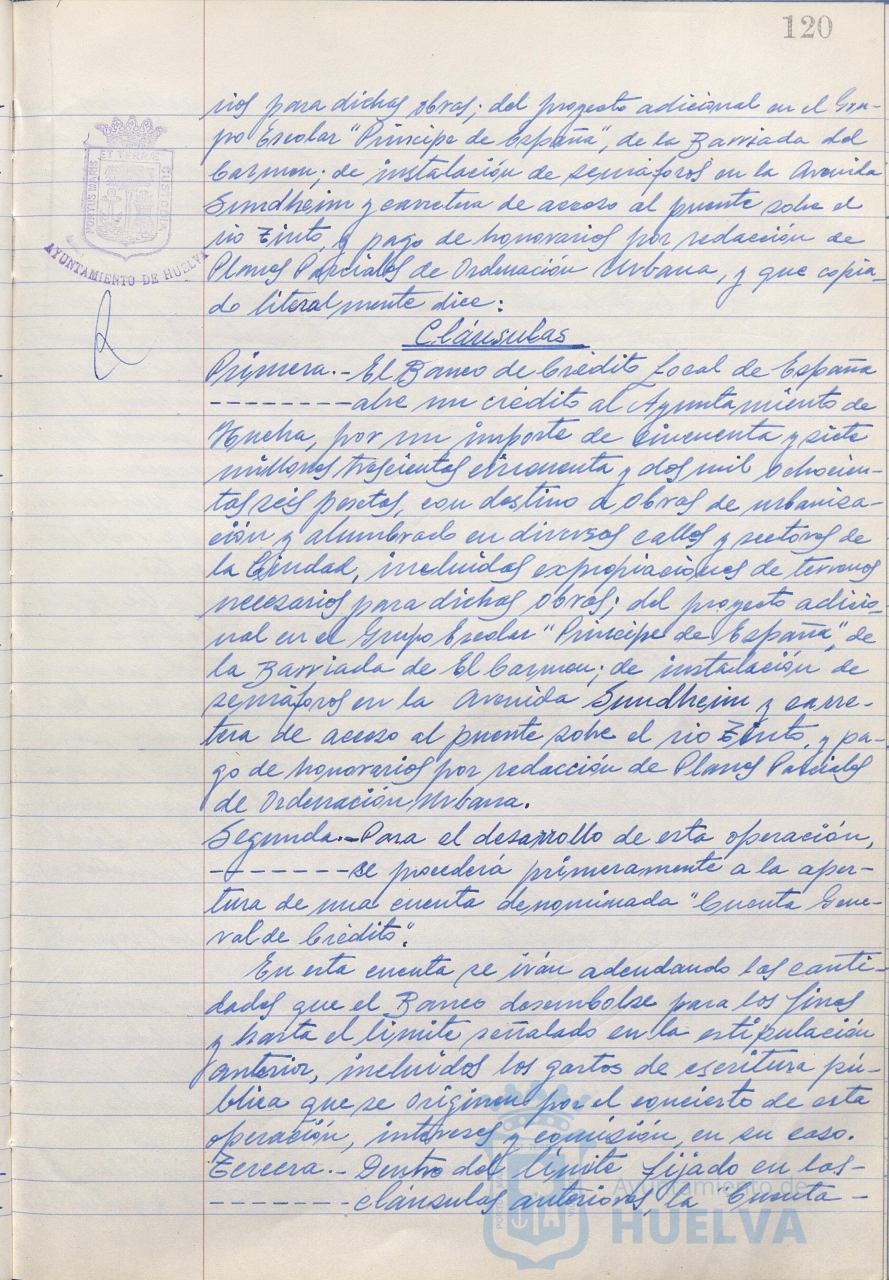 120
rios para dichas obras; del proyecto adicional en el Gru-
po Escolar "Príncipe de España", de la Barriada del
Carmen; de instalación de semáforos en la Avenida
Sundheim y carretera de acceso al puente sobre el
rio Tinto, y pago de honorarios por redacción de
Planes Parciales de Ordenación Urbana, y que copia-
do literalmente dice:
Cláusulas
Primera.- El Banco de Crédito Local de España
--------abre un crédito al Ayuntamiento de
Huelva, por un importe de cincuenta y siete
millones trescientas cincuenta y dos mil ochocien-
tas seis pesetas, con destino a obras de urbaniza-
ción y alumbrado en diversas calles y sectores de
la Ciudad, incluidas expropiaciones de terrenos
necesarios para dichas obras; del proyecto adicio-
nal en el Grupo Escolar "Príncipe de España", de
la Barriada de El Carmen; de instalación de
semáforos en la Avenida Sundheim y carre-
tera de acceso al puente sobre el rio Tinto, y pa-
go de honorarios por redacción de Planes Parciales
de Ordenación Urbana.
Segunda.- Para el desarrollo de esta operación,
-------se procederá primeramente a la aper-
tura de una cuenta denominada "Cuenta Gene-
ral de Crédito".
En esta cuenta se irán adeudando las canti-
dades que el Banco desembolse para los fines
y hasta el límite señalado en la estipulación
anterior, incluidos los gastos de escritura pú-
blica que se originen por el concierto de esta
operación, intereses y comisión, en su caso.
Tercera.- Dentro del límite fijado en las-
-------cláusulas anteriores, la Cuenta-
PORTUS MARIS ET TERRAE CUSTODIA
AYUNTAMIENTO DE HUELVA
Ayuntamiento de
HUELVA